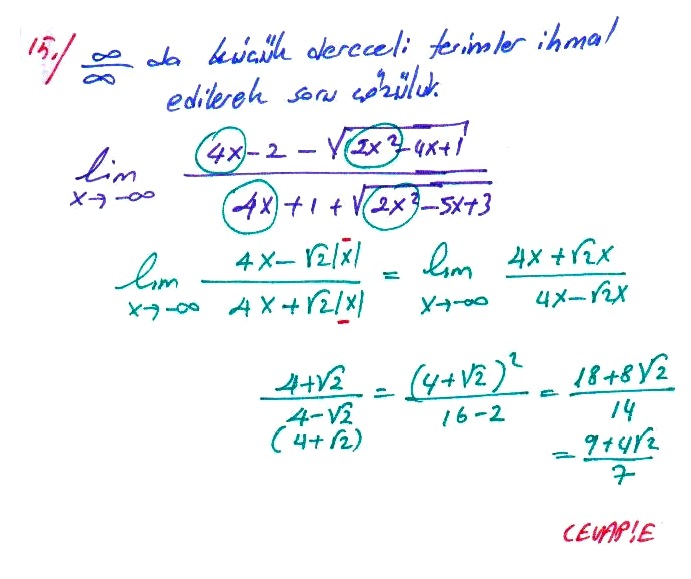 15./ ∞/∞ da küçük dereceli terimler ihmal
edilerek soru çözülür.
lim x→-∞ (4x-2-√(2x²-4x+1))/(4x+1+√(2x²-5x+3))
lim x→-∞ (4x-√2|x|)/(4x+√2|x|) = lim x→-∞ (4x+√2x)/(4x-√2x)
(4+√2)/(4-√2) = (4+√2)²/(16-2) = (18+8√2)/14
(4+√2)
= (9+4√2)/7
CEVAP:E